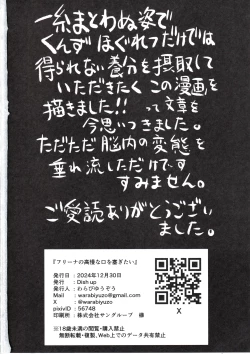 一糸まとわぬ姿で
くんずほぐれつだけでは
得られない養分を摂取して
いただきたくこの漫画を
描きました!!って文章を
今思いつきました。
ただただ脳内の変態を
垂れ流しただけです
すみません。
ご愛読ありがとうござい
ました。
『フリーナの高慢な口を塞ぎたい』
発行日:2024年12月30日
発行:Dish up
発行人:わらびゆうぞう
Mail:warabiyuzo@gmail.com
X:@warabiyuzo
pixivID:56748
印刷所:株式会社サングループ 様
※18歳未満の閲覧・購入禁止
無断転載・複製、Web上でのデータ共有禁止
X